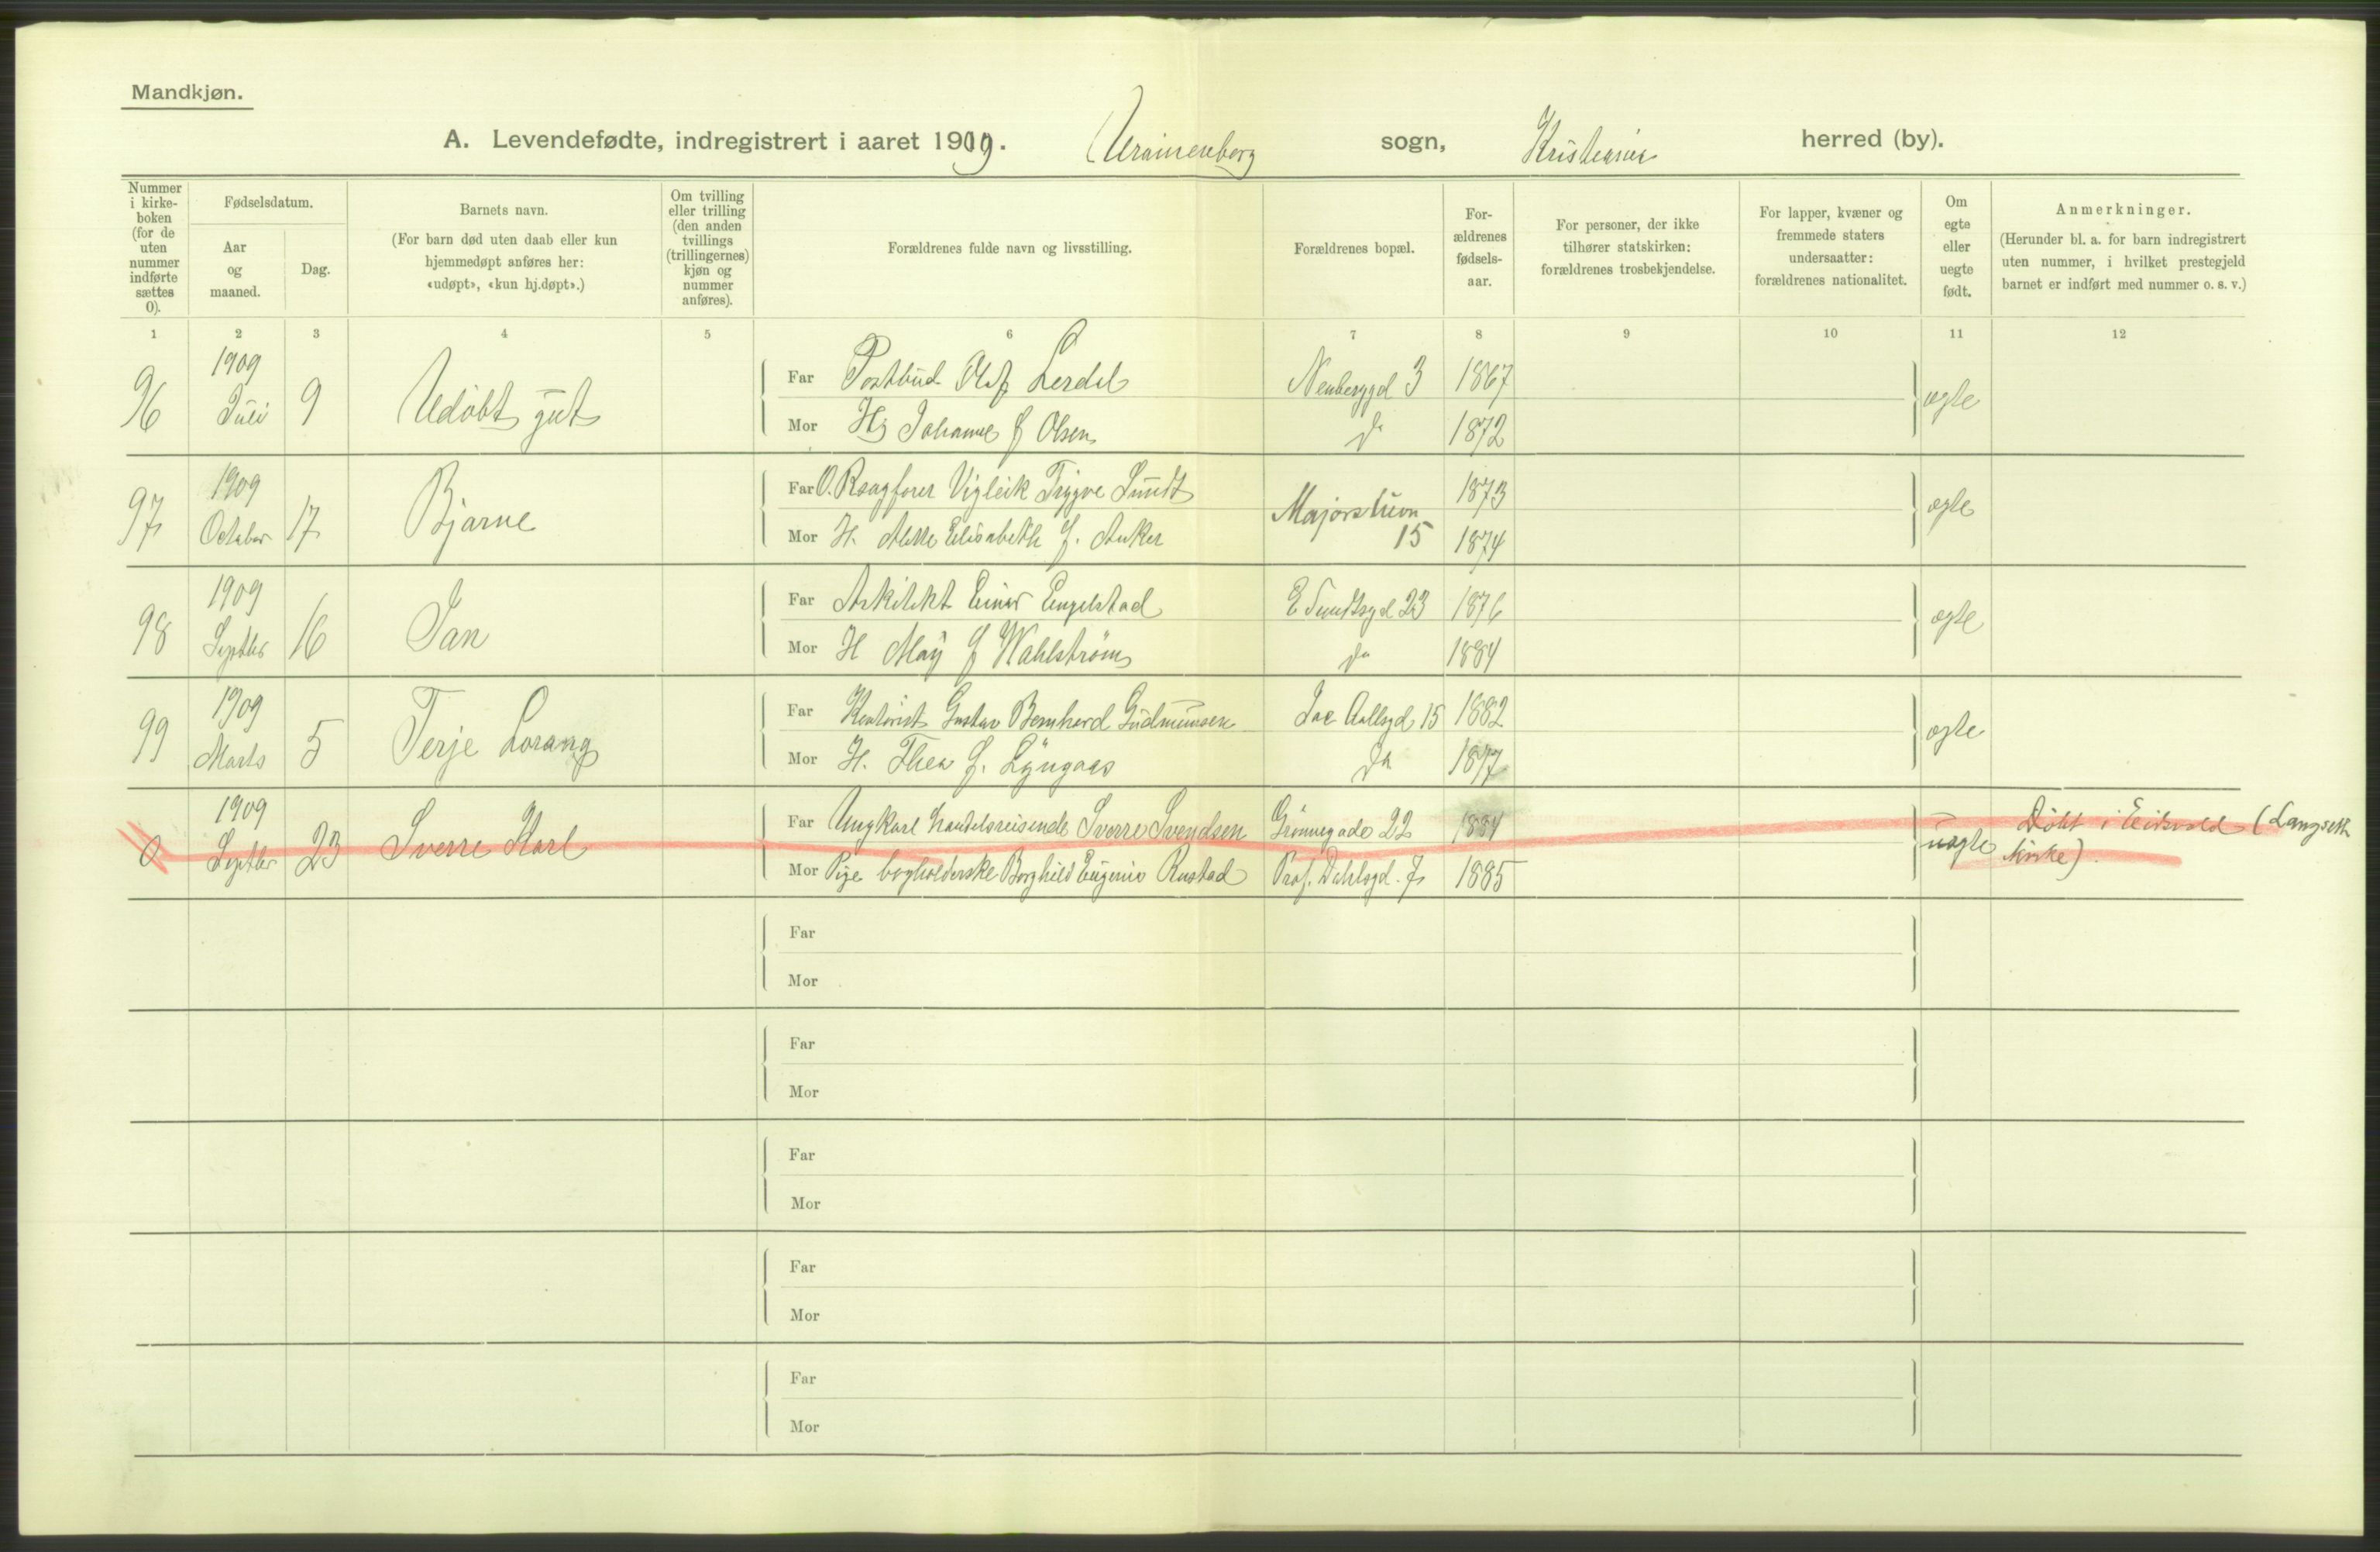 Mandkjøn.
A. Levendefødte, indregistrert i aaret 1909. Uranienborg sogn, Kristiania herred (by).
Nummer i kirke-boken (for de uten nummer indførte sættes 0).
Fødselsdatum.
Aar og maaned.
Dag.
Barnets navn.
(For barn død uten daab eller kun hjemmedøpt anføres her: «udøpt», «kun hj.døpt».)
Om tvilling eller trilling (den anden tvillings (trillingernes) kjøn og nummer anføres).
Forældrenes fulde navn og livsstilling.
Forældrenes bopæl.
For-ældrenes fødsels-aar.
For personer, der ikke tilhører statskirken: forældrenes trosbekjendelse.
For lapper, kvæner og fremmede staters undersaatter: forældrenes nationalitet.
Om egte eller uegte født.
Anmerkninger.
(Herunder bl. a. for barn indregistrert uten nummer, i hvilket prestegjeld barnet er indført med nummer o. s. v.)
1 2 3 4 5 6 7 8 9 10 11 12
96 1909 Juli 9 Udöbt gut
Far Postbud Olaf Lerdal Neuberggd 3 1867
Mor H Johanne f Olsen do 1872 ægte
97 1909 October 17 Bjarne
Far O.R.sagfører Vigleik Trygve Sundt Majorstuvn 15 1873
Mor H. Elisabeth f. Anker 1874 ægte
98 1909 Septbr 16 Jan
Far Arkitekt Einar Engelstad E Sundtsgd 23 1876
Mor H May f Wahlstrøm do 1884 ægte
99 1909 Marts 5 Terje Lorang
Far Kontorist Gustav Bernhard Gudmunsen Jac Aallsgd 15 1882
Mor H. Thea f. Lÿngaas do 1877 ægte
0 1909 Septbr 23 Sverre Karl
Far Ungkarl handelsreisende Sverre Svendsen Grønnegade 22 1884
Mor Pige bogholderske Borghild Eugenie Rustad Prof. Dahlsgd. 7 1885 uægte
Döbt i Eidsvold (Langseth kirke).
Far
Mor
Far
Mor
Far
Mor
Far
Mor
Far
Mor